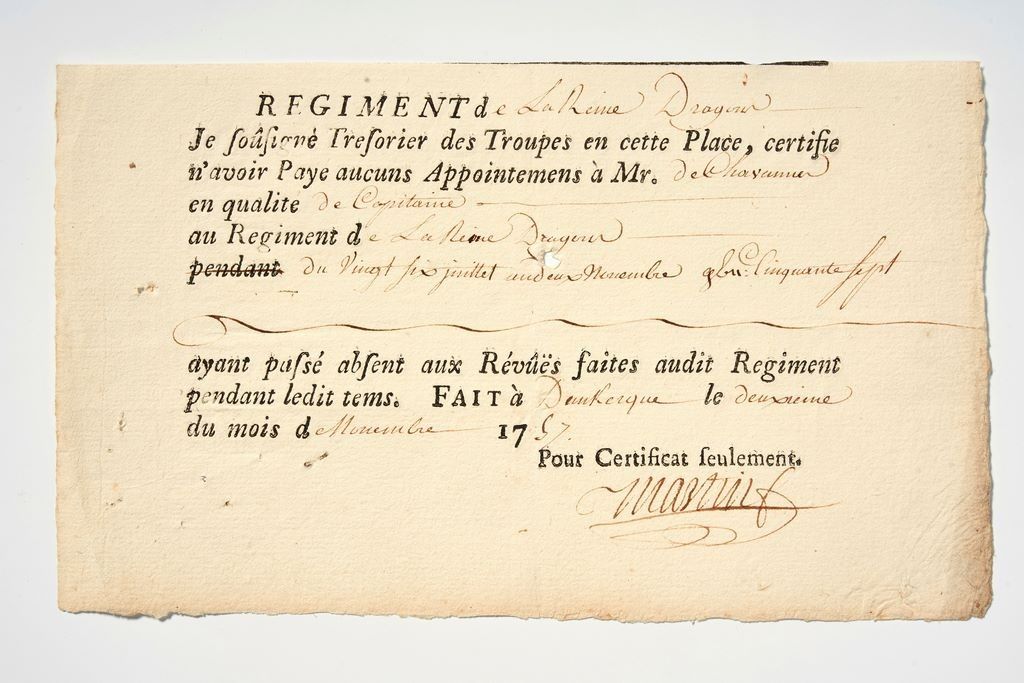 REGIMENT de La Reine Dragons
Je soûsigné Tresorier des Troupes en cette Place, certifie
n'avoir Paye aucuns Appointemens à Mr. de Chavannes
en qualite de Capitaine
au Regiment de La Reine Dragons
pendant du Vingt six juillet au deux Novembre Cinquante sept
ayant passé absent aux Révûës faites audit Regiment
pendant ledit tems. FAIT à Dunkerque le deuxieme
du mois de Novembre 1757.
Pour Certificat seulement.
Martin